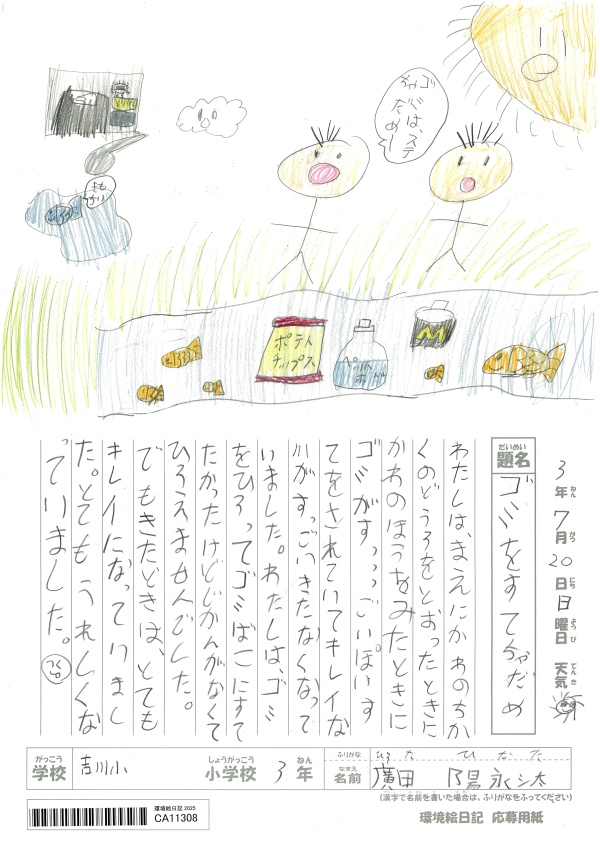 ゴミは、ステ
ちゃ
だめー
さもわり
ポテト
チップス
ペット
ボトル
M
3年7月20日日曜日 天気
だいめい
題名 ゴミをすてちゃだめ
わたしは、まえにかわのちか
くのどうろをとおったときに
かわのほうをみたときに
ゴミがすっっっごいぽいす
てをされていてキレイな
川がすっごいきたなくなって
いました。わたしは、ゴミ
をひろってゴミばこにすて
たかったけどじかんがなくて
ひろえませんでした。
でもきたどきは、とても
キレイになっていまし
た。とてもうれしくな
っていました。
がっこう
学校 吉川小
しょうがっこう
小学校 3年
ふりがな ひろた ひなた
なまえ
名前 廣田 陽永汰
(漢字で名前を書いた場合は、ふりがなをふってください)
環境絵日記 2025
CA11308
環境絵日記 応募用紙